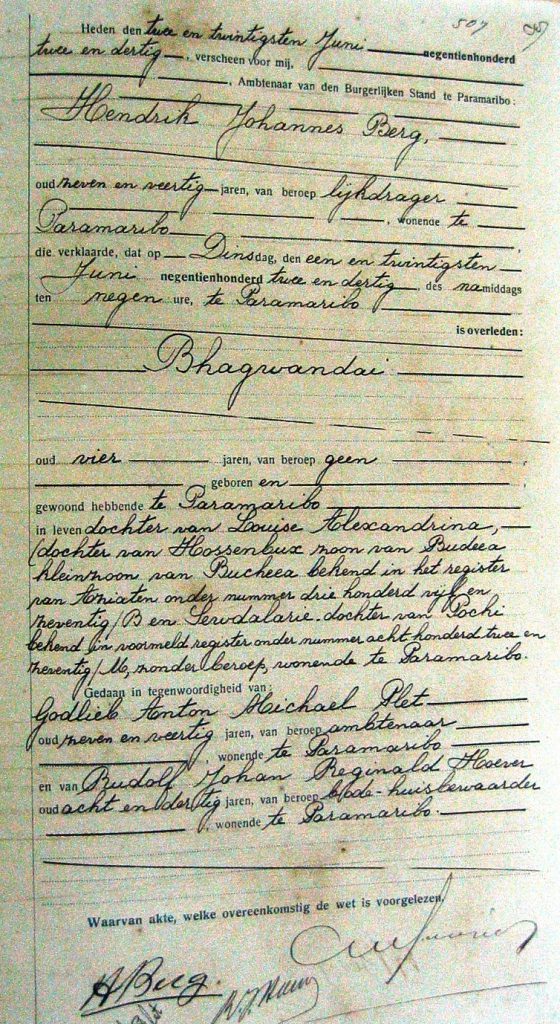 507
Heden den twee en twintigsten Juni negentienhonderd
twee en dertig, verscheen voor mij,
, Ambtenaar van den Burgerlijken Stand te Paramaribo:
Hendrik Johannes Berg,
oud zeven en veertig jaren, van beroep lijkdrager
, wonende te
Paramaribo,
die verklaarde, dat op Dinsdag, den een en twintigsten
Juni negentienhonderd twee en dertig des namiddags
ten negen ure, te Paramaribo
is overleden:
Bhagwandai
oud vier jaren, van beroep geen,
geboren en
gewoond hebbende te Paramaribo
in leven dochter van Louise Alexandrina,
(dochter van Hossenbux zoon van Budeea
kleinzoon van Bucheea bekend in het register
van Aziaten onder nummer drie honderd vijf en
zeventig/B en Sewdalarie dochter van Pochi
bekend in voormeld register onder nummer acht honderd twee en
zeventig/M, zonder beroep, wonende te Paramaribo.
Gedaan in tegenwoordigheid van:
Godlieb Anton Michael Plet
oud zeven en veertig jaren, van beroep ambtenaar
, wonende te Paramaribo
en van Rudolf Johan Reginald Hoever
oud acht en dertig jaren, van beroep bode-huisbewaarder
, wonende te Paramaribo.
Waarvan akte, welke overeenkomstig de wet is voorgelezen.
H Berg.